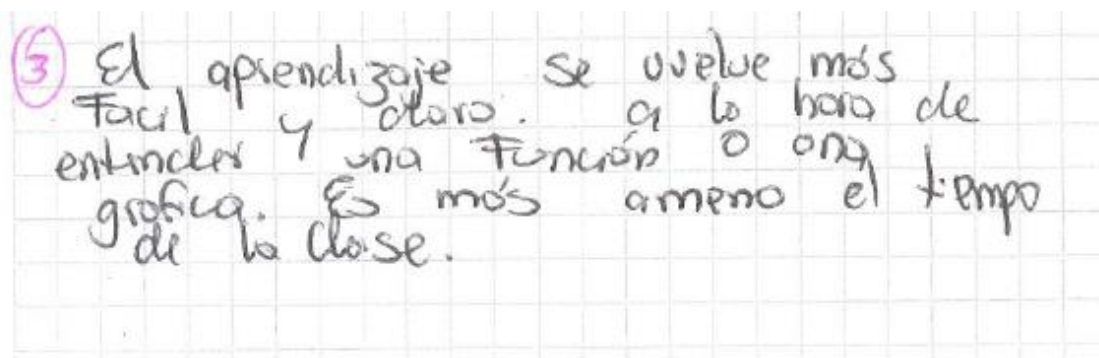 3 El aprendizaje se vuelve más
Facil y claro. a la hora de
entinder una Función o una
grafica. Es más ameno el tiempo
de la clase.